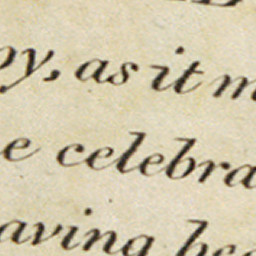 py, as it m
e celebra
aving bee